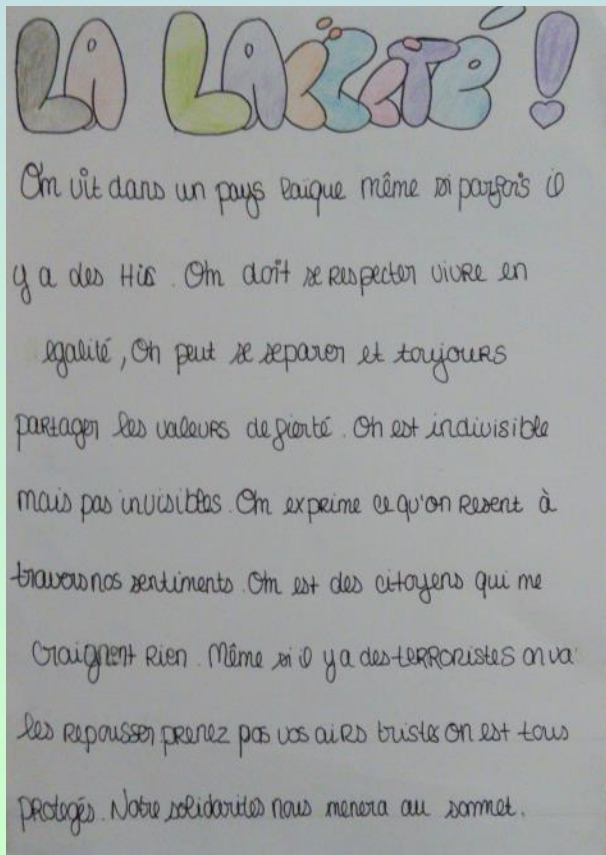 LA LAÏCITÉ !
On vit dans un pays laique même si parfois il
y a des His . On doit se respecter vivre en
egalité, On peut se separer et toujours
partager les valeurs de fierté . On est indivisible
mais pas invisibles . On exprime ce qu'on resent à
travers nos sentiments . On est des citoyens qui ne
craignent rien . Même si il y a des terroristes on va
les repousser prenez pas vos airs tristes on est tous
protegés . Notre solidarites nous menera au sommet .